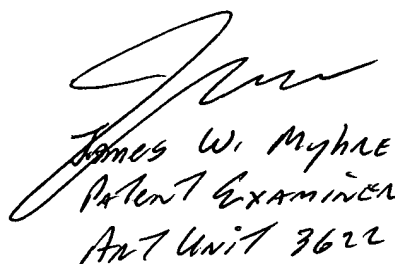 James W. Myhre
Patent Examiner
Art Unit 3622